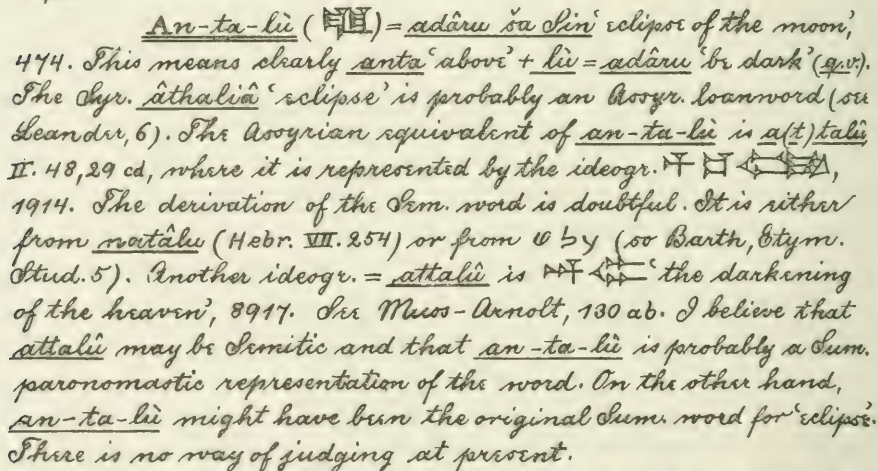 An-ta-lù ( ) = adâru ša Sin 'eclipse of the moon',
474. This means clearly anta 'above' + lù = adâru 'be dark' (q.v.).
The Syr. âthaliâ 'eclipse' is probably an Assyr. loanword (see
Leander, 6). The Assyrian equivalent of an-ta-lù is a(t)talû
II. 48, 29 cd, where it is represented by the ideogr. ,
1914. The derivation of the Sem. word is doubtful. It is either
from natâlu (Hebr. VII. 254) or from עלט (so Barth, Etym.
Stud. 5). Another ideogr. = attalû is 'the darkening
of the heaven', 8917. See Muss-Arnolt, 130 ab. I believe that
attalû may be Semitic and that an-ta-lù is probably a Sum.
paronomastic representation of the word. On the other hand,
an-ta-lù might have been the original Sum. word for 'eclipse'.
There is no way of judging at present.